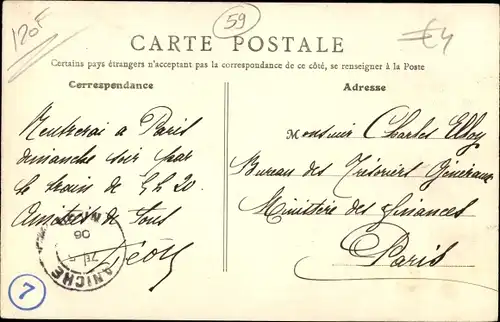 120F
59
€4
CARTE POSTALE
Certains pays étrangers n'acceptant pas la correspondance de ce côté, se renseigner à la Poste
Correspondance
Adresse
Rentrerai à Paris
dimanche soir par
le train de 9h20.
Amitiés de tous
Léon
Monsieur Charles
Bureau des Trésoriers Généraux
Ministère des Finances
Paris
06
ANICHE
7